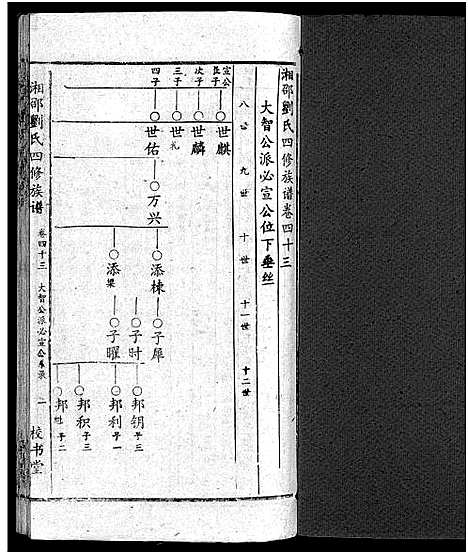 湘邵劉氏四修族谱卷四十三
大智公派必宣公位下垂丝
八世 九世 十世 十一世 十二世
宣公長子 世麒
次子 世麟
三子 世礼
四子 世佑
万兴
添棟
添梁
子犀
子时
子曜
邦钥 子三
邦利 子一
邦积 子三
邦 子二
湘邵劉氏四修族谱 卷四十三 大智公派必宣公卷录 二 校书堂